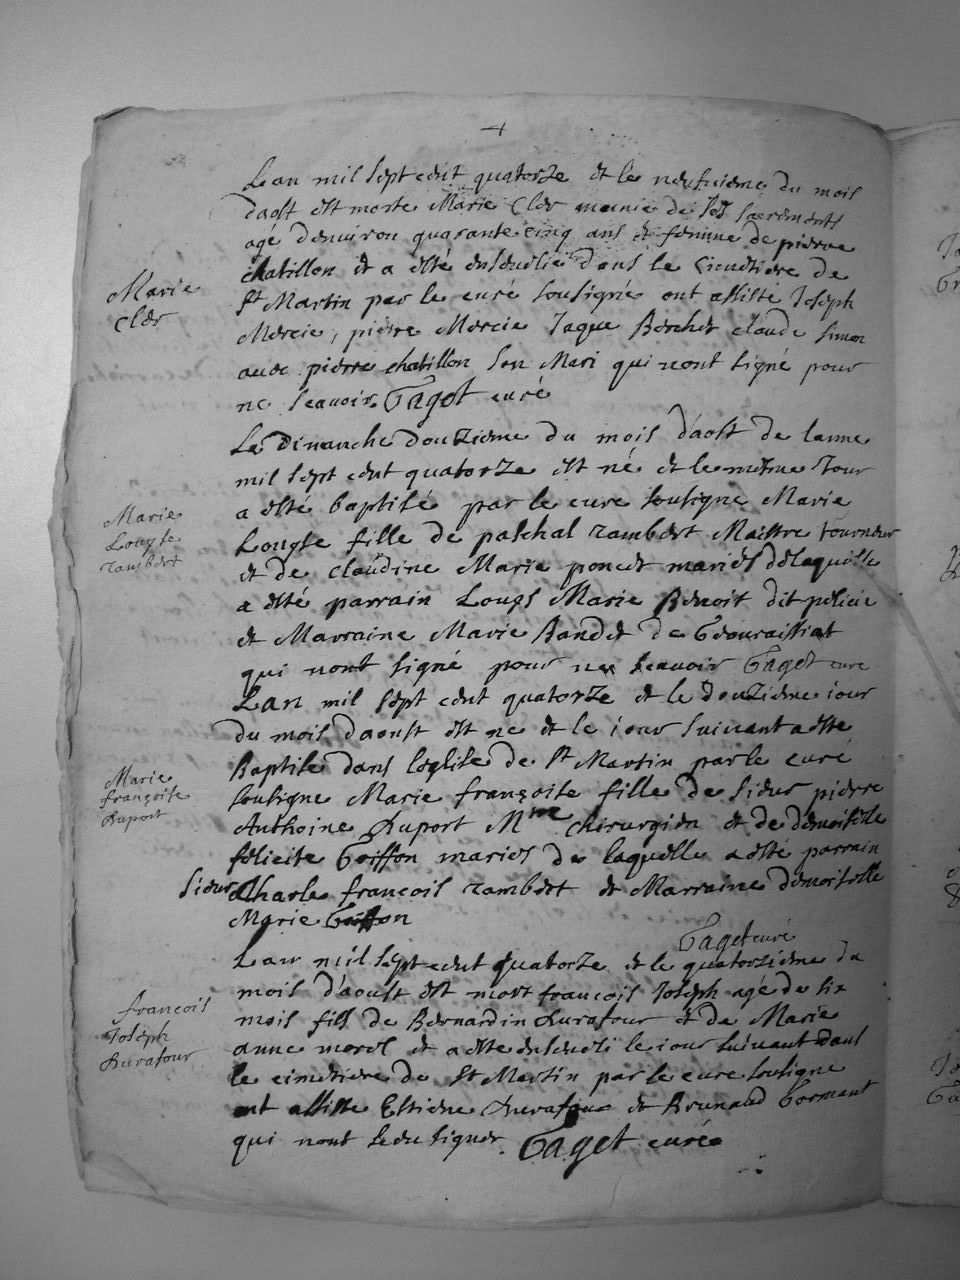 4
Lan mil sept cent quatorze et le neufuieme du mois
daost est morte Marie Cler munie de ses sacremonts
agé denuiron quarante cinq ans et femme de pierre
chatillon et a esté enseuelie dans le Cimetiere de
Marie
Cler
St Martin par le curé sousigné ont assisté Joseph
Mercie, pierre Mercie Jaque Berchet claude simon
auec pierre chatillon son Mari qui nont signé pour
ne sçauoir. Taget curé
Le Dimanche douzieme du mois d'aost de lanne
mil sept cent quatorze est né et le meme Jour
a esté baptisé par le cure sousigne Marie
Marie
Louyse
rambert
Louyse fille de paschal rambert Maistre tourneur
et de claudine Marie poncet mariés delaquelle
a esté parrain Louys Marie Benoit dit pelicie
et Marraine Marie Bandet de
qui nont signé pour ne sçauoir Taget cure
Lan mil sept cent quatorze et le douzieme iour
du mois daoust est ne et le iour suiuant a este
Baptise dans leglise de St Martin par le curé
Marie
françoise
Duport
sousigne Marie françoise fille de sieur pierre
Anthoine Duport Mtre chirurgien et de demoiselle
felicite Goiffon mariés de laquelle a esté parrain
sieur Charle françois rambert et Marraine demoiselle
Marie Goiffon
Taget curé
Lan mil sept cent quatorze et le quatorzieme du
mois d'aoust est mort françois Joseph agé de six
françois
Joseph
Durafour
mois fils de Bernardin Durafour et de Marie
anne morel et a este enseueli le iour suiuant dans
le cimetiere de St Martin par le cure sousigne
ont assiste Estiene Durafour et Brunaud Gormant
qui nont sceu signer. Taget curé